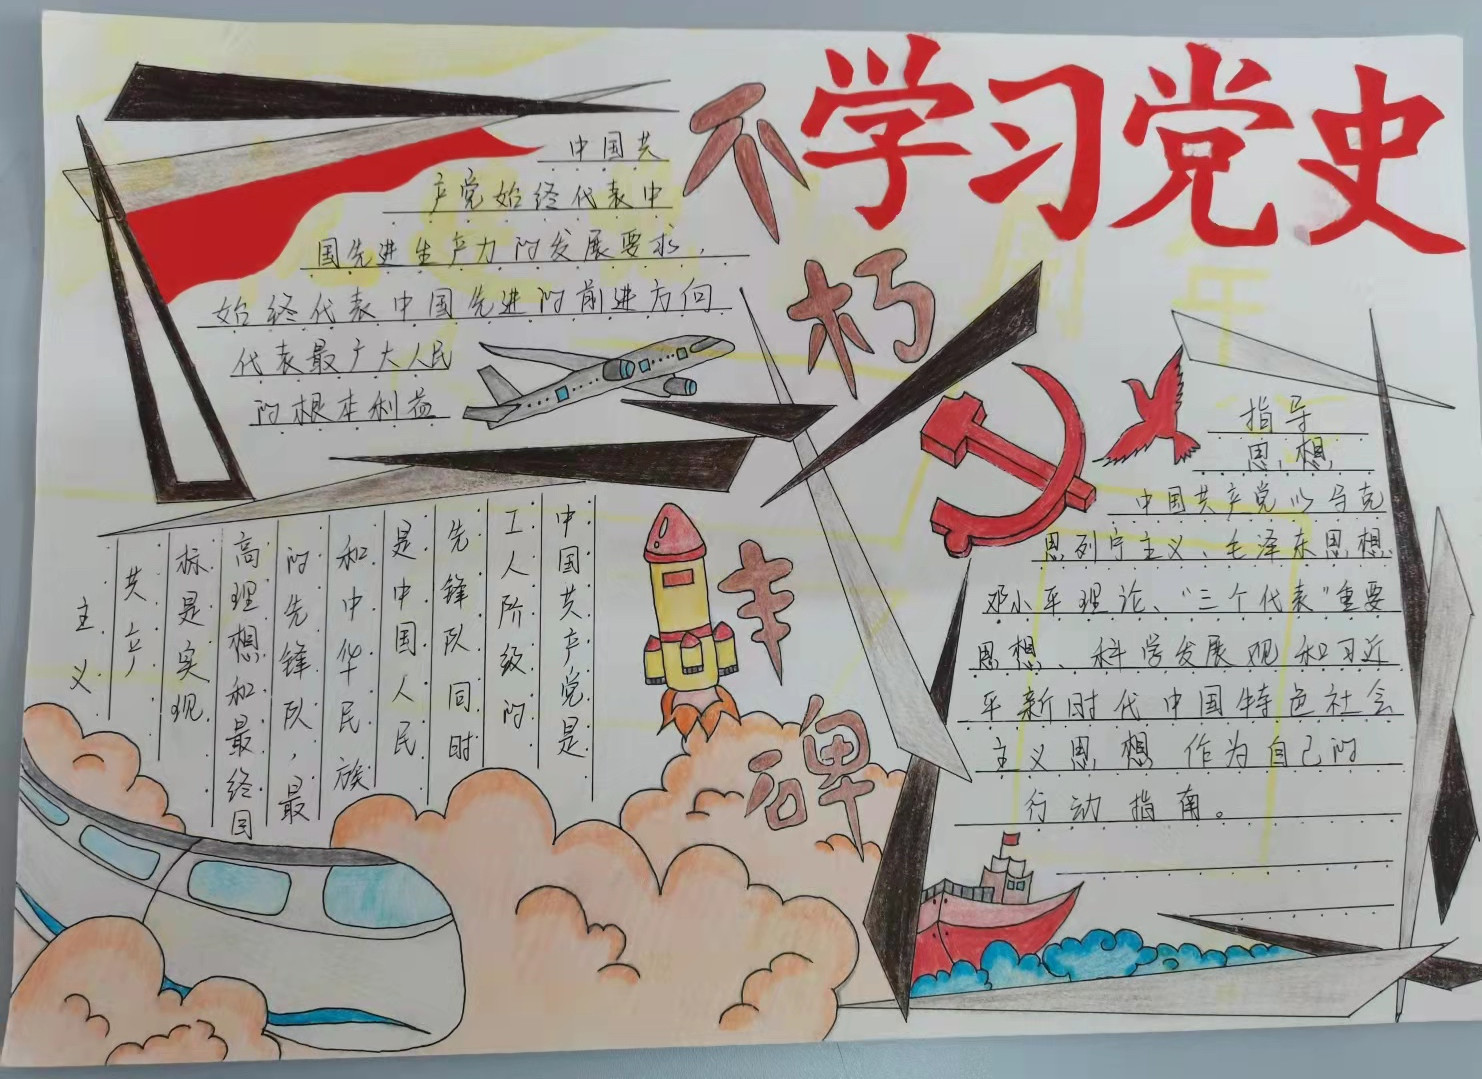 学习党史
不朽丰碑
中国共
产党始终代表中
国先进生产力的发展要求,
始终代表中国先进的前进方向
代表最广大人民
的根本利益
中国共产党是
工人阶级的
先锋队同时
是中国人民
和中华民族
的先锋队,最
高理想和最终目
标是实现
共产
主义
指导
思想
中国共产党以马克
思列宁主义、毛泽东思想
邓小平理论、“三个代表”重要
思想、科学发展观和习近
平新时代中国特色社会
主义思想作为自己的
行动指南。